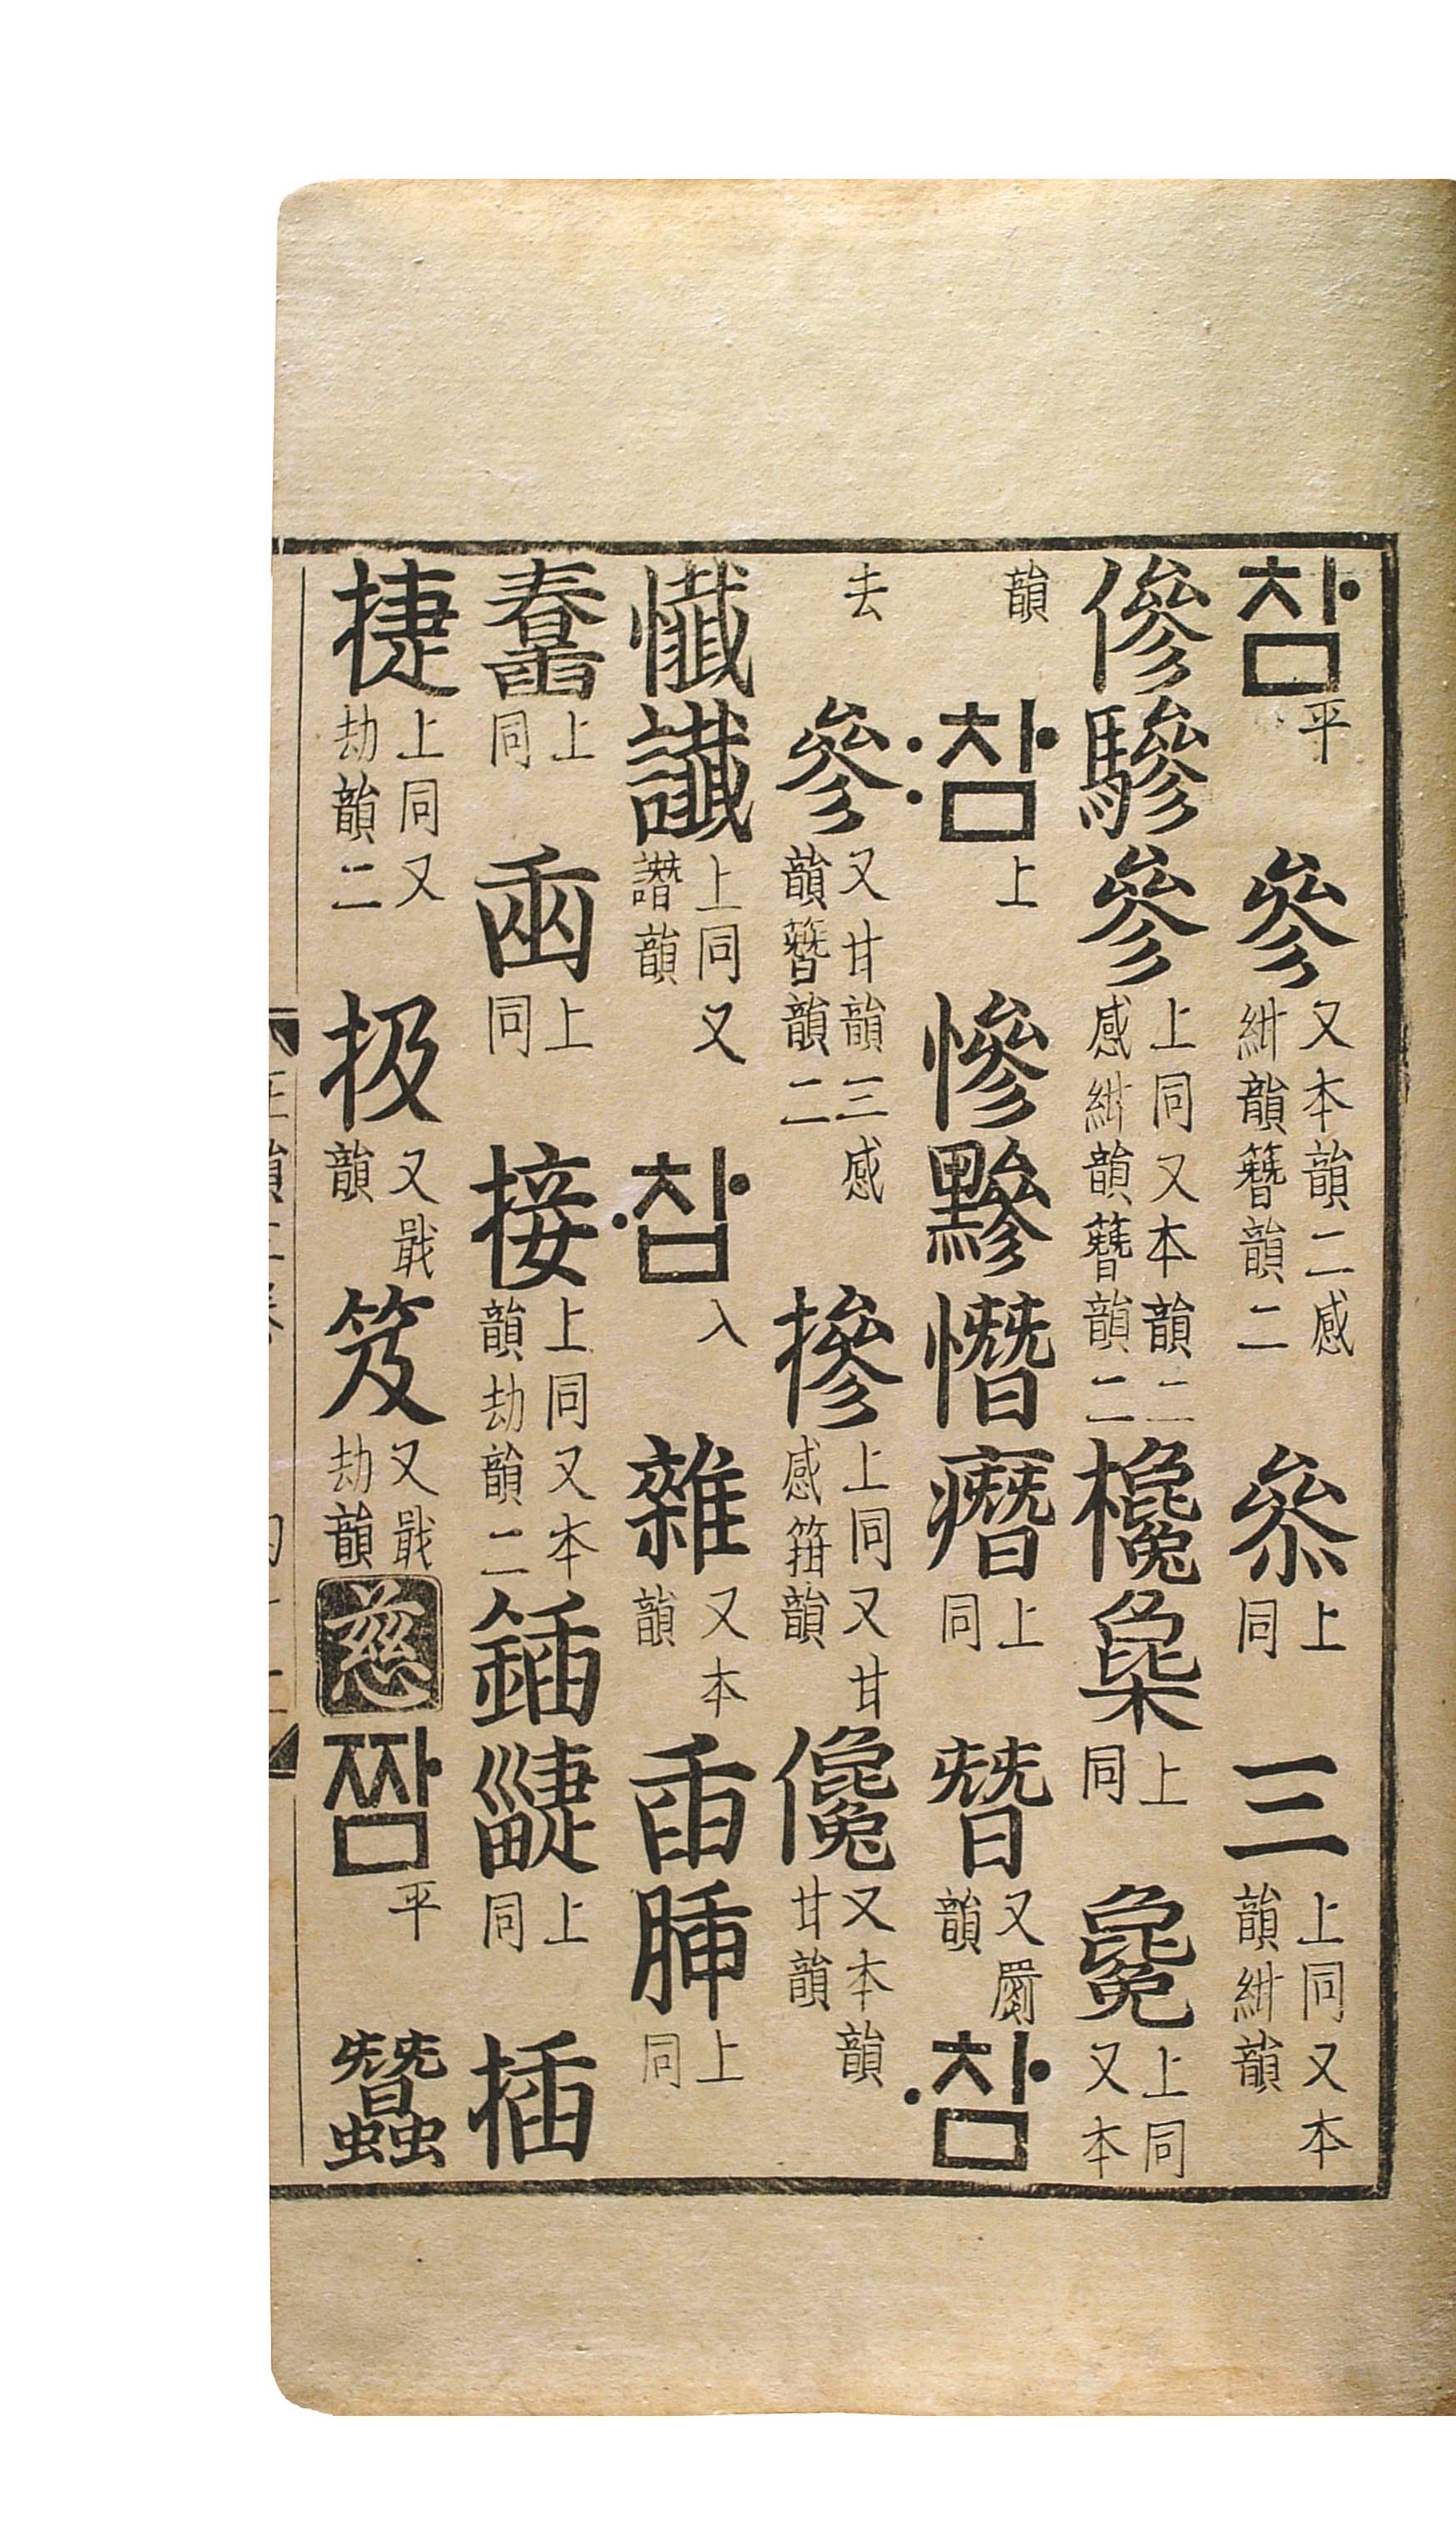 참 平 參 又本韻二感紺韻簪韻二 叅 上同 三 上同又本韻紺韻
傪驂參 上同又本韻二感紺韻簪韻二 欃 上同 毚 上同又本
韻 참 上 慘黲憯 上同 朁 又韻 참
去 參 又甘韻三感韻簪韻二 摻 上同又甘感箝韻 儳 又本韻甘韻
懺讖 上同又譖韻 참 入 雜 又本韻 臿 上同
上同 上同 接 上同又本韻劫韻二 鍤 上同 插
捷 上同又劫韻二 扱 又戢韻 笈 又戢劫韻 慈 짬 平 蠶